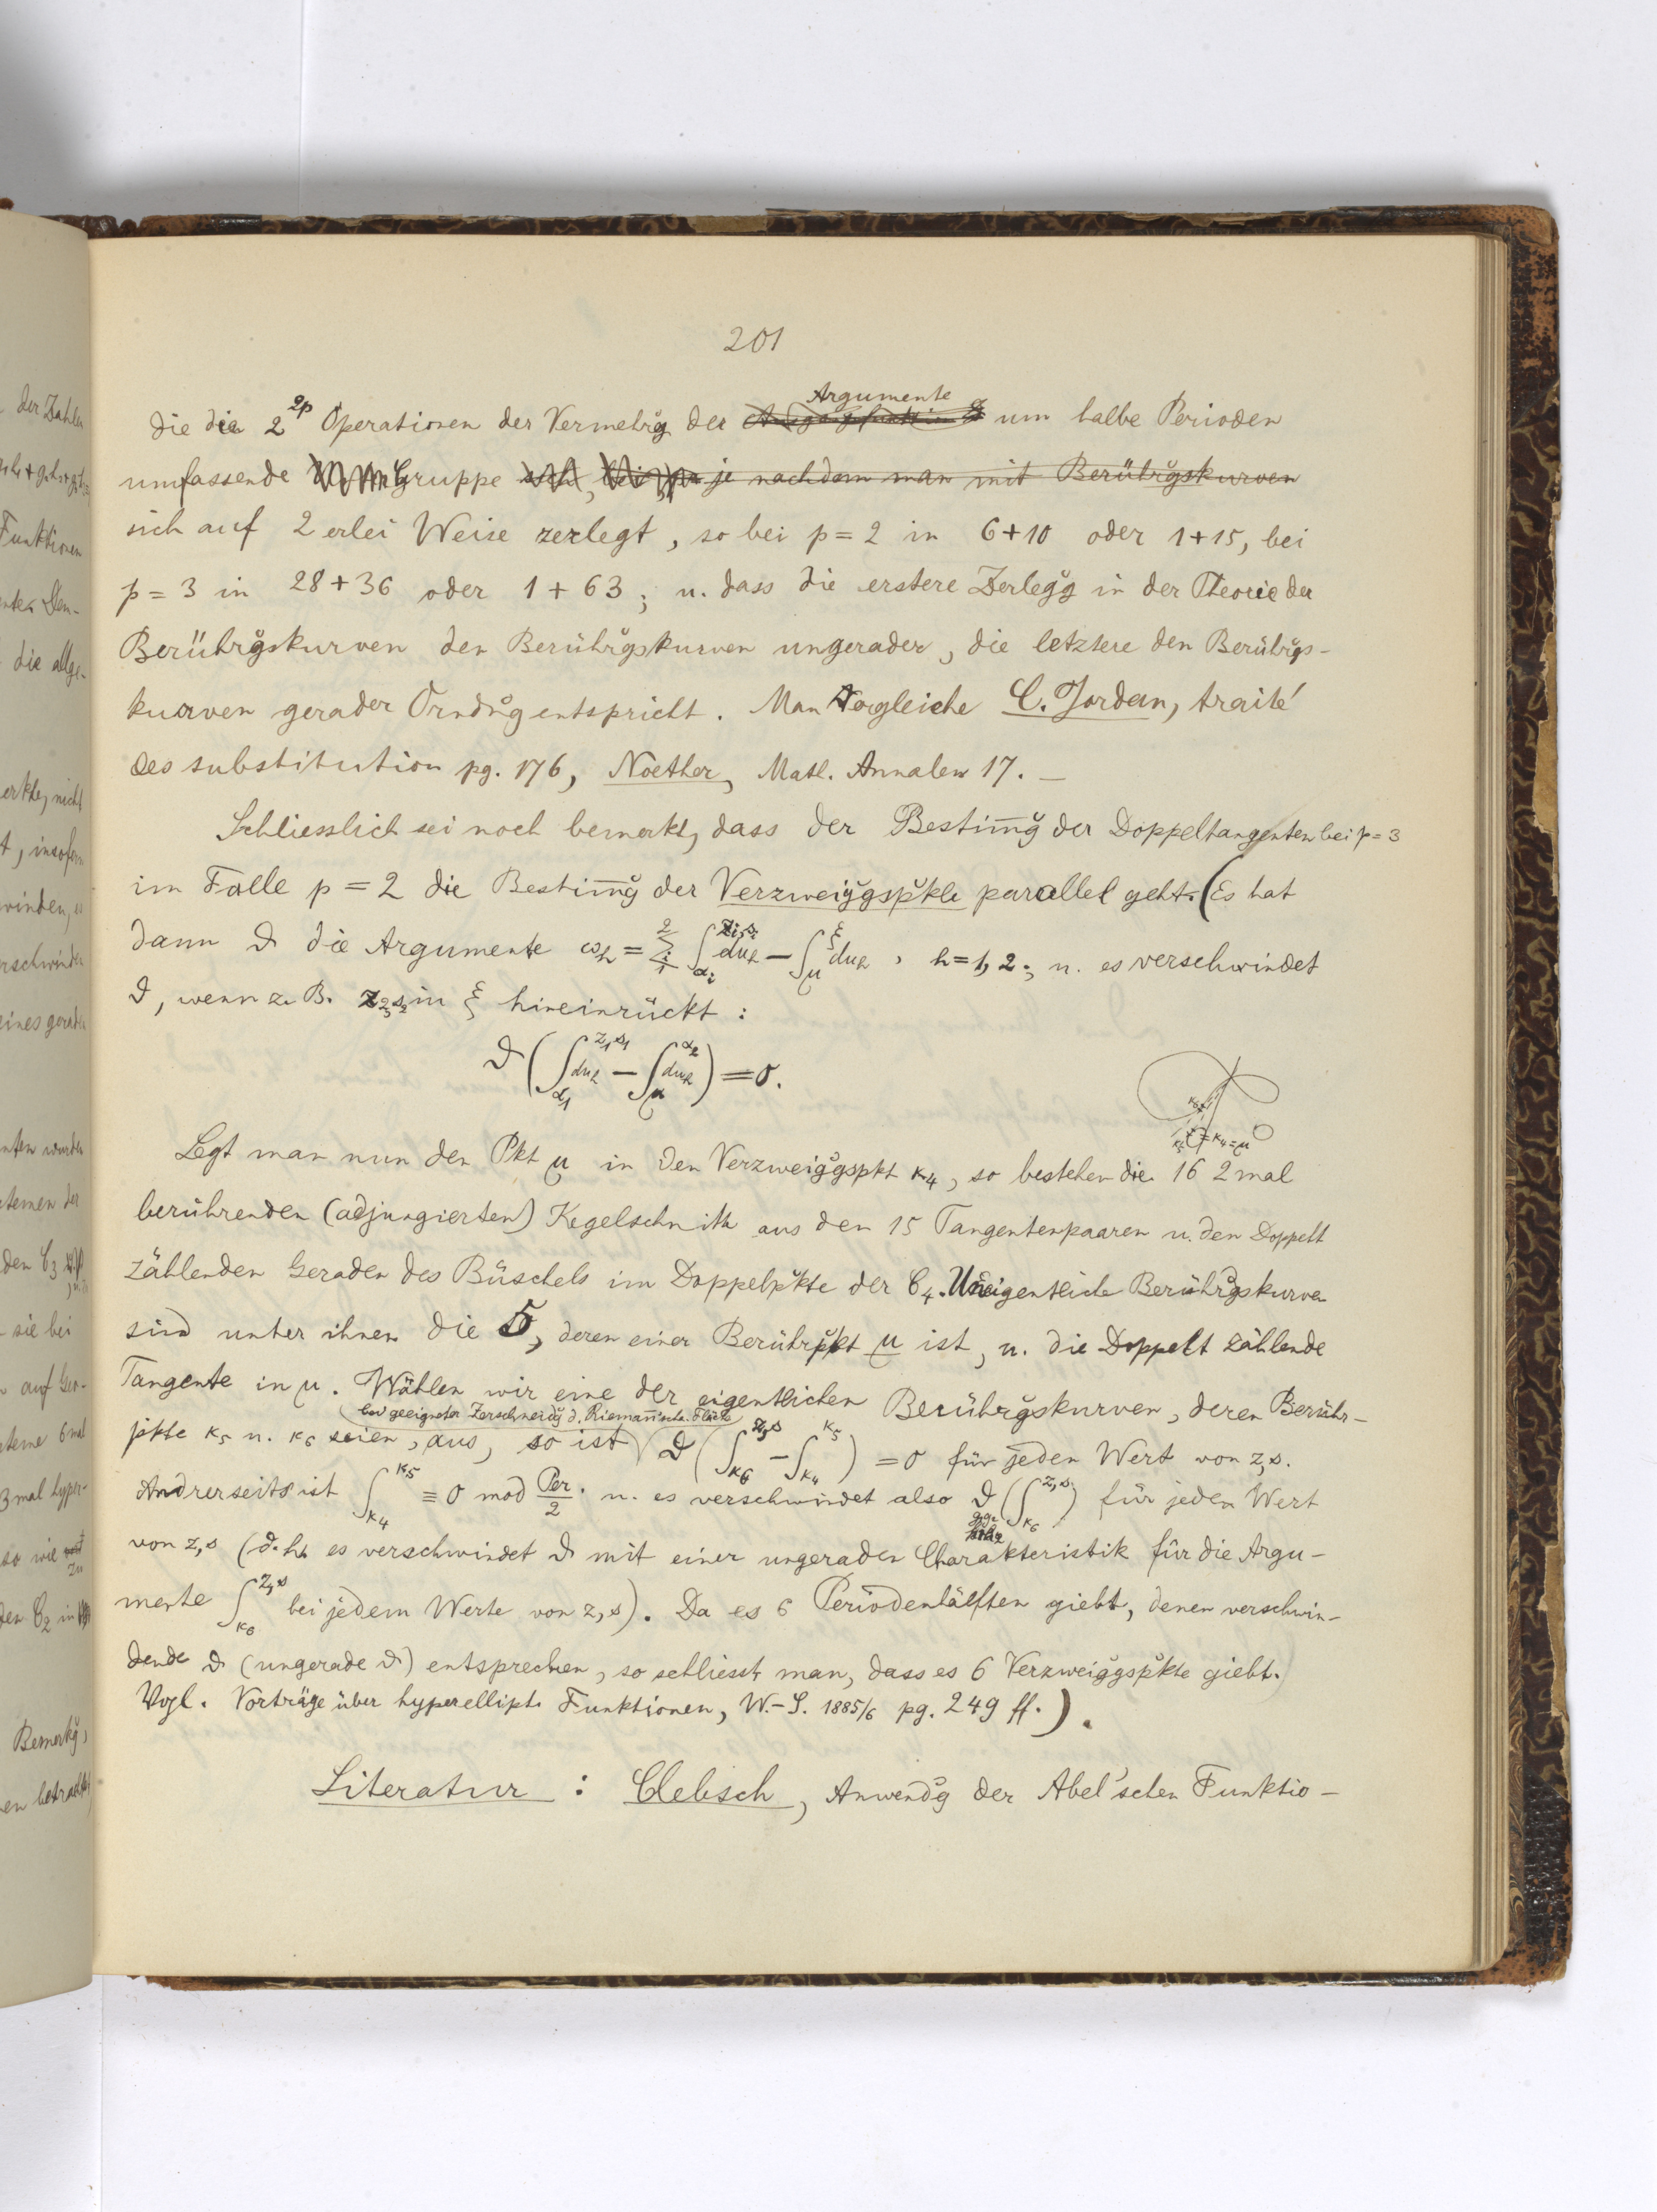 201
die die 2^{2p} Operationen der Vermehrg der Argumente um halbe Perioden
umfassende Gruppe je nachdem man mit Berührgskurven
sich auf 2erlei Weise zerlegt, so bei p = 2 in 6+10 oder 1+15, bei
p = 3 in 28+36 oder 1+63; u. dass die erstere Zerlegg in der Theorie der
Berührgskurven den Berührgskurven ungerader, die letztere den Berührgs-
kurven gerader Ordnug entspricht. Man vergleiche C. Jordan, traité
des substitution pg. 176, Noether, Math. Annalen 17. —
Schliesslich sei noch bemerkt, dass der Bestimg der Doppeltangenten bei p=3
im Falle p = 2 die Bestimg der Verzweiggspkte parallel geht. (Es hat
dann ϑ die Argumente ω_h = Σ_{i=1}^{2} ∫_{α_i}^{z_i,s_i} du_h − ∫_μ^ξ du_h, h=1,2; u. es verschwindet
ϑ, wenn z. B. z_2,s_2 in ξ hineinrückt:
ϑ(∫_{α_1}^{z_1 s_1} du_h − ∫_μ^{α_2} du_h) = 0.
κ_5 κ_4=μ
Legt man nun den Pkt μ in den Verzweiggspkt κ_4, so bestehen die 16 2mal
berührenden (adjungierten) Kegelschnitte aus den 15 Tangentenpaaren u. den Doppelt
zählenden Geraden des Büschels im Doppelpkte der C_4. Uneigentliche Berührgskurven
sind unter ihnen die 5, deren einer Berührpkt μ ist, u. die Doppelt zählende
Tangente in μ. Wählen wir eine der eigentlichen Berührgskurven, deren Berühr-
bei geeigneter Zerschneidg d. Riemannsche. Fläche
pkte κ_5 u. κ_6 seien, aus, so ist ϑ(∫_{κ_6}^{z,s} − ∫_{κ_4}^{κ_5}) = 0 für jeden Wert von z,s.
Andrerseits ist ∫_{κ_4}^{κ_5} ≡ 0 mod Per/2. u. es verschwindet also ϑ(∫_{κ_6}^{z,s}) für jeden Wert
von z,s (d. h. es verschwindet ϑ mit einer ungeraden Charakteristik für die Argu-
mente ∫_{κ_6}^{z,s} bei jedem Werte von z,s). Da es 6 Periodenhälften giebt, denen verschwin-
dende ϑ (ungerade ϑ) entsprechen, so schliesst man, dass es 6 Verzweiggspkte giebt.
Vgl. Vorträge über hyperellipt. Funktionen, W.-S. 1885/6 pg. 249 ff.).
Literatur : Clebsch, Anwendg der Abel'schen Funktio-